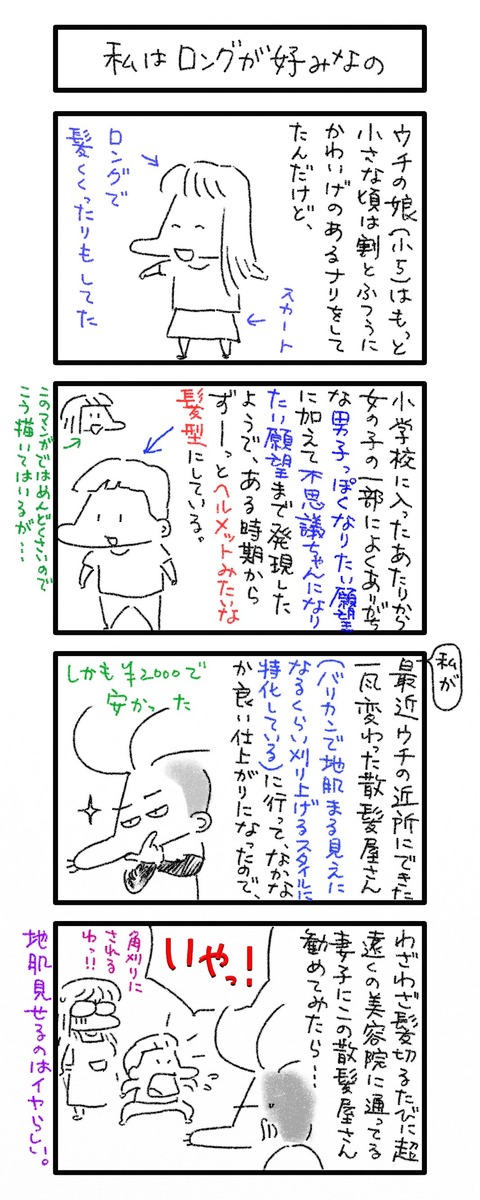 私はロングが好みなの
ウチの娘(小5)はもっと
小さな頃は割とふつうに
かわいげのあるナリをして
たんだけど、
ロングで
髪くくったりもしてた
スカート
小学校に入ったあたりから
女の子の一部によくありがち
な男子っぽくなりたい願望
に加えて不思議ちゃんになり
たい願望まで発現した
ようで、ある時期から
ずーっとヘルメットみたいな
髪型にしている。
このマンガではめんどくさいので
こう描いてはいるが…
私が
最近ウチの近所にできた
一風変わった散髪屋さん
(バリカンで地肌まる見えに
なるくらい刈り上げるスタイルに
特化している)に行って、なかな
か良い仕上がりになったので、
しかも¥2000で
安かった
わざわざ髪切るたびに超
遠くの美容院に通ってる
妻子にこの散髪屋さん
勧めてみたら…
いやっ!
角刈りに
される
わっ!!
地肌見せるのはイヤらしい。